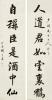 人道君如雲裏鶴
自稱臣是酒中仙